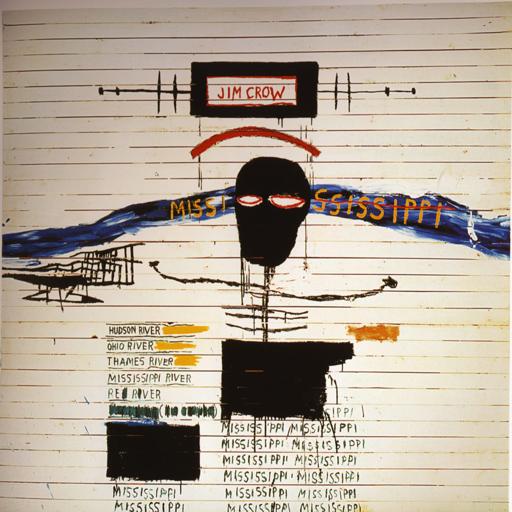 JIM CROW
MISSI SSISSIPPI
HUDSON RIVER
OHIO RIVER
THAMES RIVER
MISSISSIPPI RIVER
RED RIVER
IPPI
MISSISSIPPI MISSISSIPPI
MISSISSIPPI MISSISSIPPI
MISSISSIPPI MISSISSIPPI
MISSISSIPPI MISSISSIPPI MISSISSIPPI
MISSISSIPPI MISSISSIPPI MISSISSIPPI